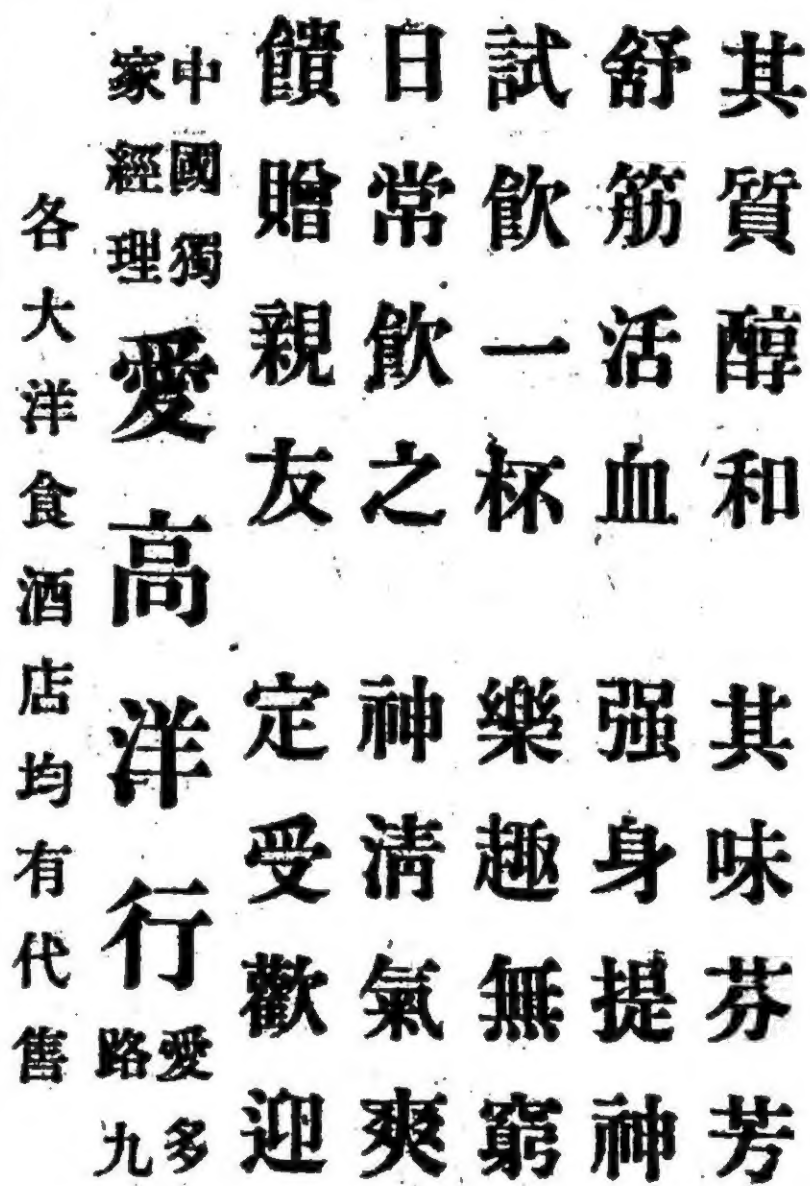 其質醇和　其味芬芳
舒筋活血　强身提神
試飲一杯　樂趣無窮
日常飲之　神清氣爽
饋贈親友　定受歡迎
中國獨家經理
愛高洋行
愛多路九
各大洋食酒店均有代售